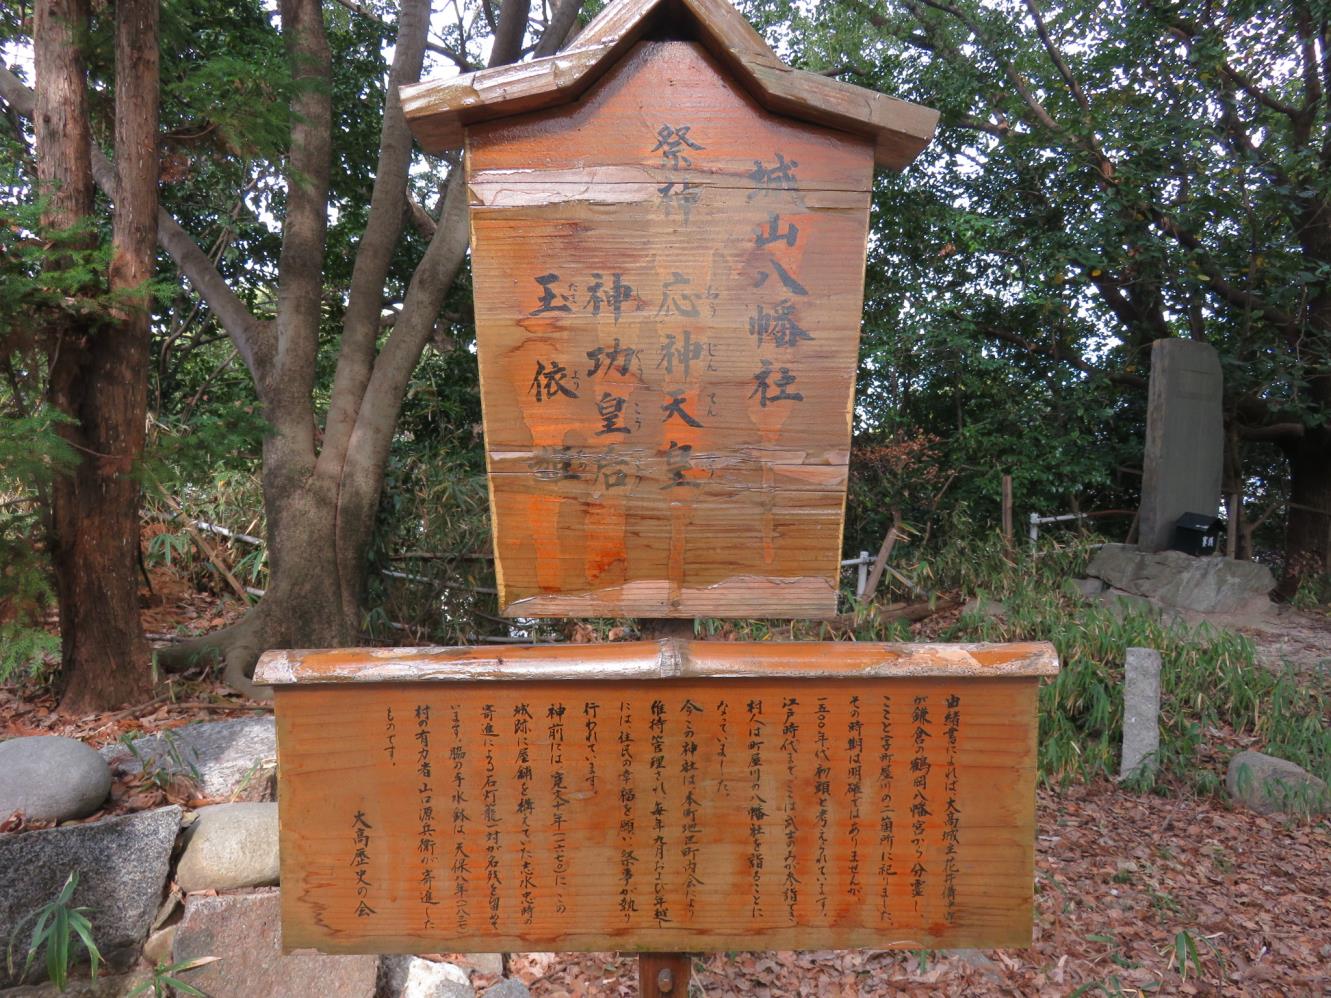 城山八幡社
祭神
応神天皇
おうじんてんのう
神功皇后
じんぐうこうごう
玉依姫
たまよりひめ
由緒書によれば、大高城主花井備中守
が鎌倉の鶴岡八幡宮から分霊し、
ここと字町屋川の二箇所に祀りました。
その時期は明確ではありませんが、
一五〇〇年代初頭と考えられています。
江戸時代までここは武士のみが参詣でき、
村人は町屋川の八幡社を詣ることに
なっていました。
今この神社は本町地区町内会により
維持管理され、毎年九月および年越し
には住民の幸福を願い、祭事が執り
行われています。
神前には寛文十年(一六七〇)に、この
城跡に屋舗を構えていた志水忠時の
寄進による石灯籠一対が名残を留めて
います。脇の手水鉢は天保八年(一八三七)
村の有力者山口源兵衛が寄進した
ものです。
大高歴史の会